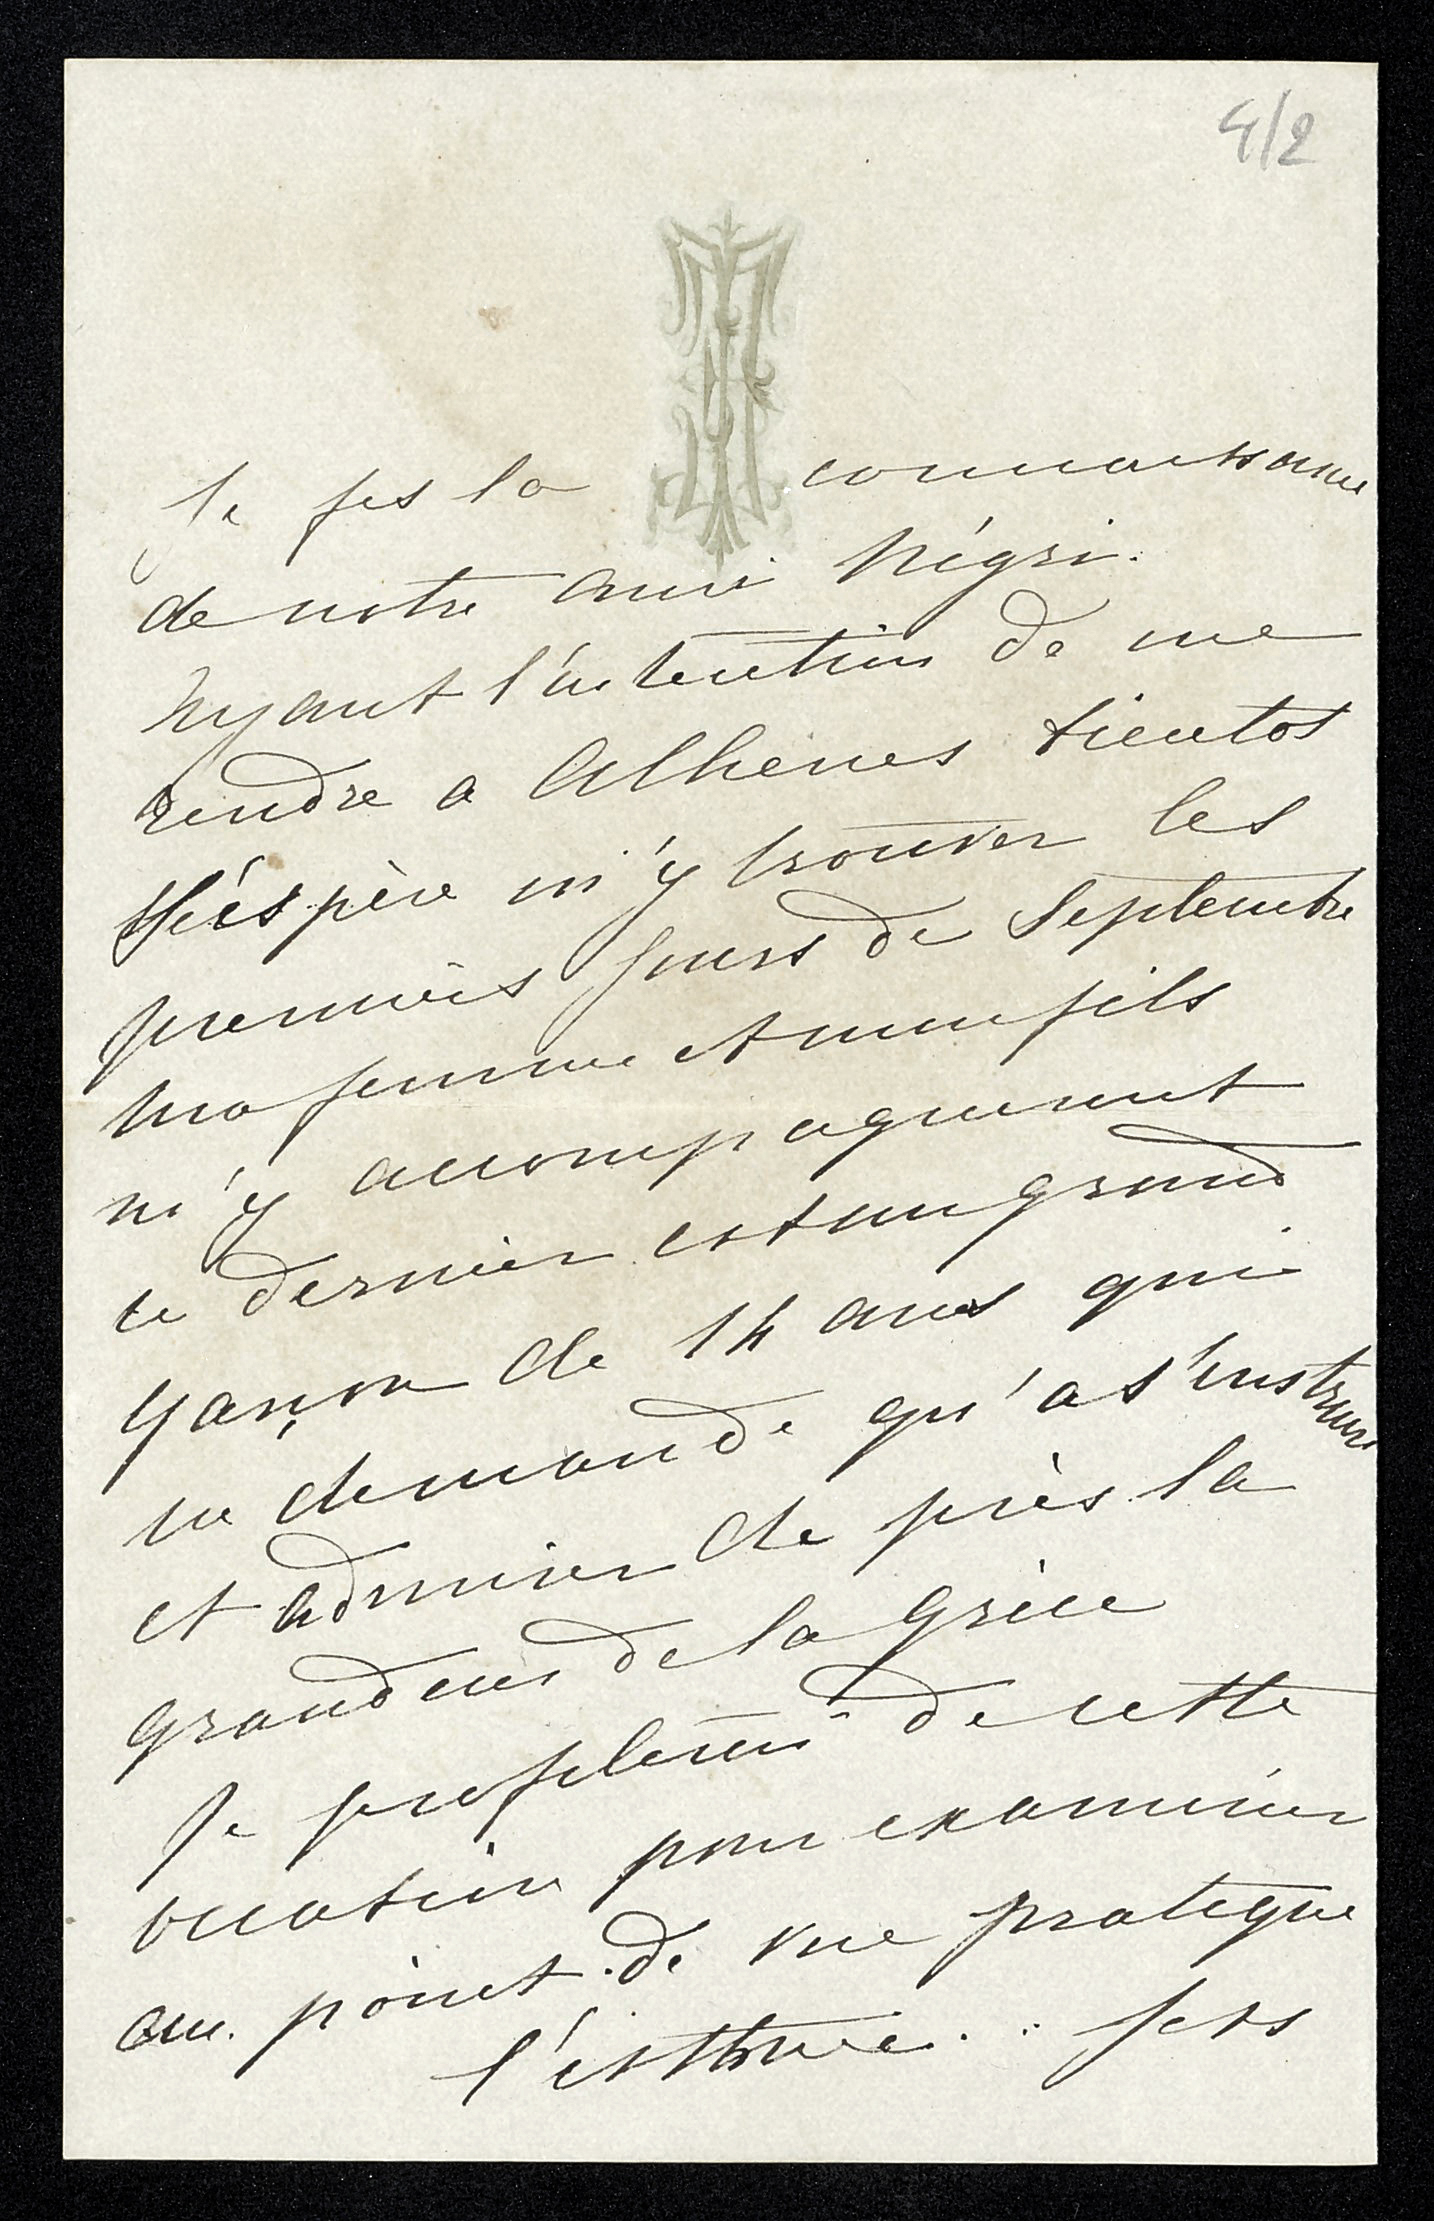 4/2
Je fis la connaissance
de notre ami Négri.
Ayant l'intention de me
rendre a Athenes bientot
J'éspère m'y trouver les
premiers jours de Septembre
Ma femme et mon fils
m'y accompagneront
ce dernier est un grand
garçon de 14 ans qui
ne demande qu'a s'instruire
et admirer de près la
grandeur de la Grèce
Je profiterai de cette
occasion pour examiner
au point de vue pratique
l'isthme